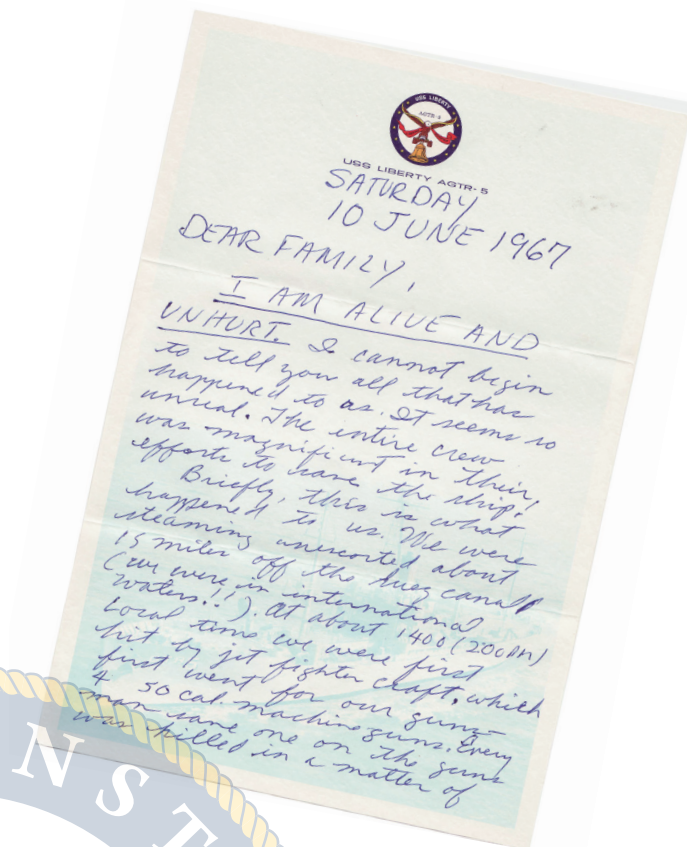 USS LIBERTY
AGTR-5
USS LIBERTY AGTR-5
SATURDAY
10 JUNE 1967
DEAR FAMILY,
I AM ALIVE AND
UNHURT. I cannot begin
to tell you all that has
happened to us. It seems so
unreal. The entire crew
was magnificent in their
efforts to save the ship!
Briefly, this is what
happened to us. We were
steaming unescorted about
15 miles off the Suez canal
(we were in international
waters!!). At about 1400 (200PM)
local time we were first
hit by jet fighter craft, which
first went for our guns-
4 50 cal. machine guns. Every
man save one on the guns
was killed in a matter of
N S T